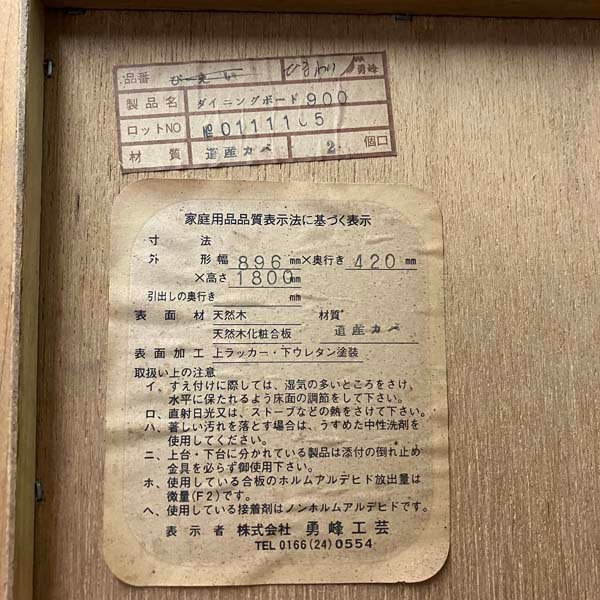 品番 ひまわり 勇峰
製品名 ダイニングボード 900
ロットNO 011115
材質 道産カバ 2 個口
家庭用品品質表示法に基づく表示
寸法
外形幅 896 mm×奥行き 420 mm
×高さ 1800 mm
引出しの奥行き mm
表面材 天然木 材質
天然木化粧合板 道産カバ
表面加工 上ラッカー・下ウレタン塗装
取扱い上の注意
イ、すえ付けに際しては、湿気の多いところをさけ、
水平に保たれるよう床面の調節をして下さい。
ロ、直射日光又は、ストーブなどの熱をさけて下さい。
ハ、著しい汚れを落とす場合は、うすめた中性洗剤を
使用してください。
ニ、上台・下台に分かれている製品は添付の倒れ止め
金具を必らず御使用下さい。
ホ、使用している合板のホルムアルデヒド放出量は
微量(F2)です。
ヘ、使用している接着剤はノンホルムアルデヒドです。
表示者 株式会社 勇峰工芸
TEL 0166(24)0554